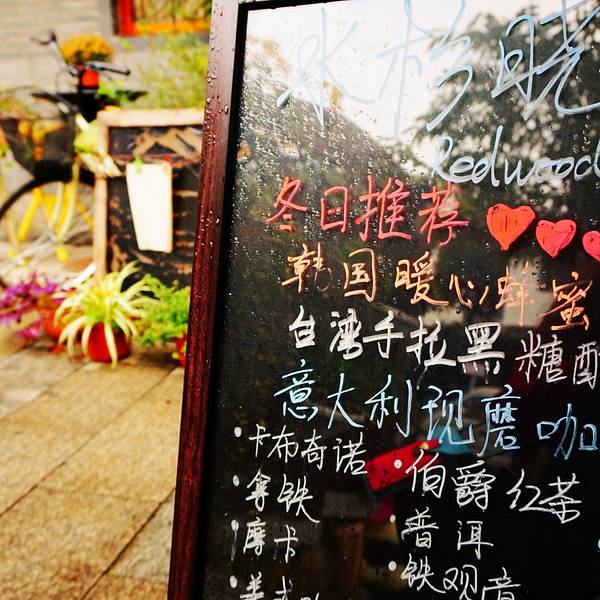 水杉晓
Redwood
冬日推荐
韩国暖心蜂蜜
台湾手拉黑糖
意大利现磨咖
·卡布奇诺
·拿铁
·摩卡
·美式
·伯爵红茶
·普洱
·铁观音